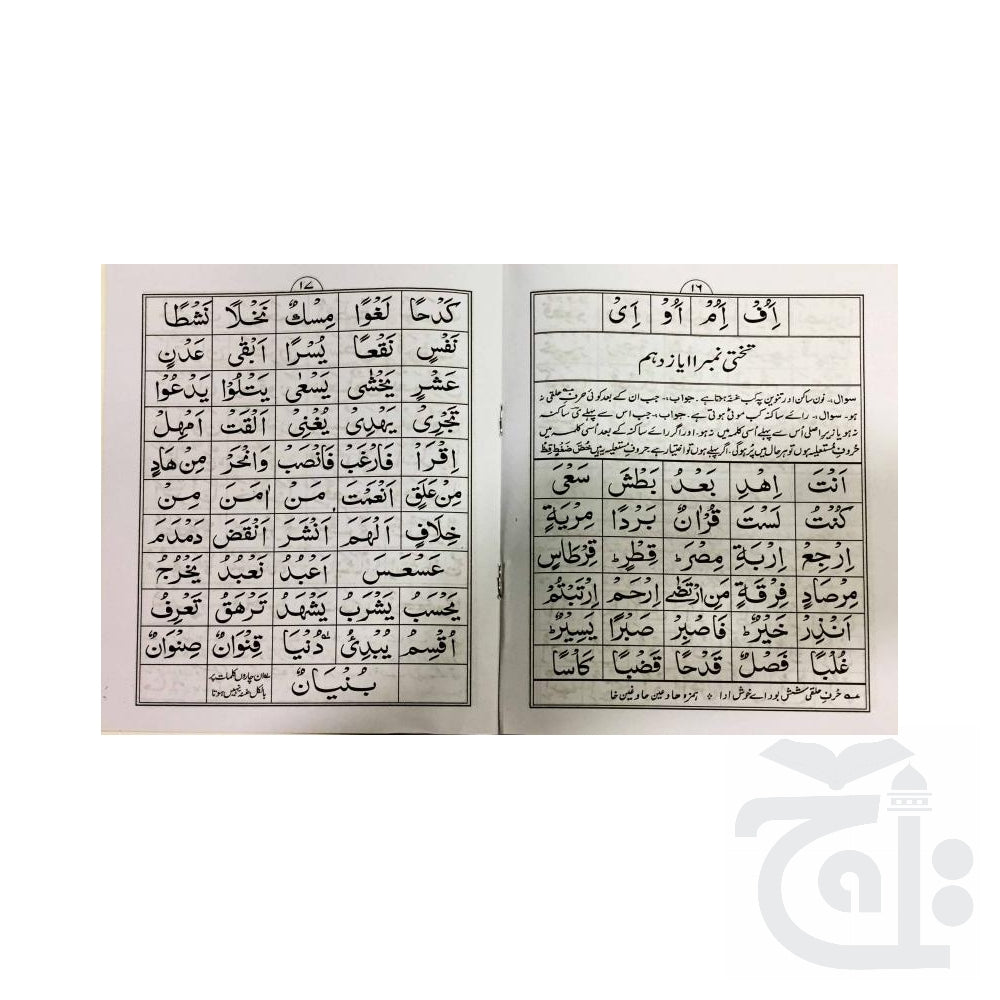 ١٦
اِفْ اِمْ اُوْ اِیْ
تختی نمبر ۱۱ یازدہم
سوال:۔ نون ساکن اور تنوین پہ کب غنہ ہوتا ہے۔ جواب:۔ جب ان کے بعد کوئی حرف حلقی نہ
ہو۔ سوال:۔ رائے ساکنہ کب موٹی ہوتی ہے۔ جواب:۔ جب اس سے پہلے ی ساکنہ
نہ ہو یا زیر اصلی اُس سے پہلے اُسی کلمہ میں نہ ہو۔ اور اگر رائے ساکنہ کے بعد اُسی کلمہ میں
حروف مستعلیہ ہوں تو ہر حال میں پُر ہوگی۔ اگر پہلے ہوں تو اختیار ہے حروف مستعلیہ یہ ہیں خُصَّ ضَغْطٍ قِظْ
اَنْتَ اِهْدِ بَعْدُ بَطْشَ سَعْیَ
كُنْتُ لَسْتَ قُرْاٰنٌ بَرْدًا مِرْيَةٍ
اِرْجِعْ اِرْبَةِ مِصْرَ قِطْرٍ قِرْطَاسٍ
مِرْصَادٍ فِرْقَةٍ مَنِ ارْتَضٰى اِرْحَمْ اِرْتَبْتُمْ
اَنْذِرْ خَيْرٌ فَاصْبِرْ صَبْرًا يَسِيْرٌ
غُلْبًا فَصْلٌ قَدْحًا قَضْبًا كَاْسًا
حرف حلقی شش بود اے خوش ادا ٭ ہمزہ ھا و عین حا و غین خا
١٧
كَدْحًا لَغْوًا مِسْكٌ نَخْلًا نَشْطًا
نَفْسٍ نَقْعًا يُسْرًا اَبْقٰى عَدْنٍ
عَشْرٍ يَخْشٰى يَسْعٰى يَتْلُوْا يَدْعُوْا
تَجْرِىْ يَهْدِىْ يُغْنِىْ اَلْقَتْ اَمْهِلْ
اِقْرَاْ فَارْغَبْ فَانْصَبْ وَانْحَرْ مِنْ هَادٍ
مِنْ عَلَقٍ اَنْعَمْتَ مَنْ اٰمَنَ مِنْ
خِلَافٍ اَلْهَمَ اَنْشَرَ اَنْقَضَ دَمْدَمَ
عَسْعَسَ اَعْبُدُ نَعْبُدُ يَخْرُجُ
يَحْسَبُ يَشْرَبُ يَشْهَدُ تَرْهَقُ تَعْرِفُ
اُقْسِمُ يُبْدِئُ دُنْيَا قِنْوَانٌ صِنْوَانٌ
بُنْيَانٌ ان چاروں کلمات پر
بالکل غنہ نہیں ہوتا